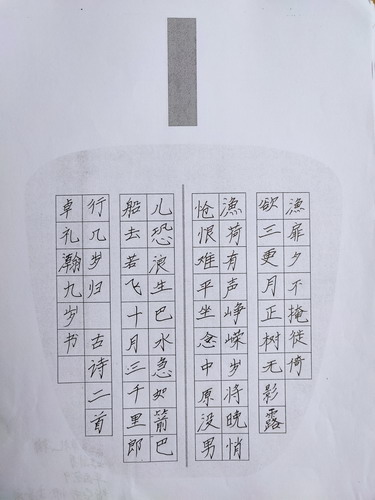 渔扉夕不掩徒倚
欲三更月正树无影露
滴荷有声峥嵘岁将晚悄
怆恨难平坐念中原没男
儿恐浪生巴水急如箭巴
船去若飞十月三千里郎
行几岁归 古诗二首
卓礼瀚九岁书